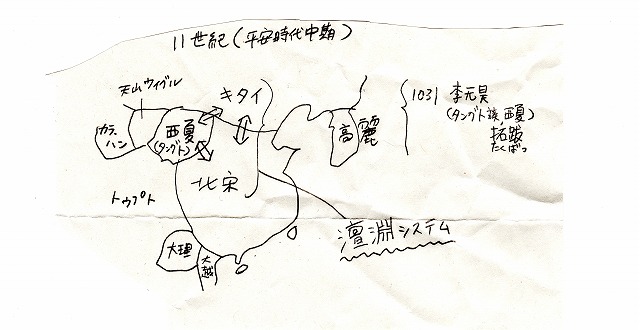 11世紀(平安時代中期)
天山ウイグル
キタイ
カラ
ハン
西夏
(タングト)
高麗
1031 李元昊
(タングト族、西夏)
拓跋
たくばつ
北宋
トゥプト
澶淵システム
大理
大越